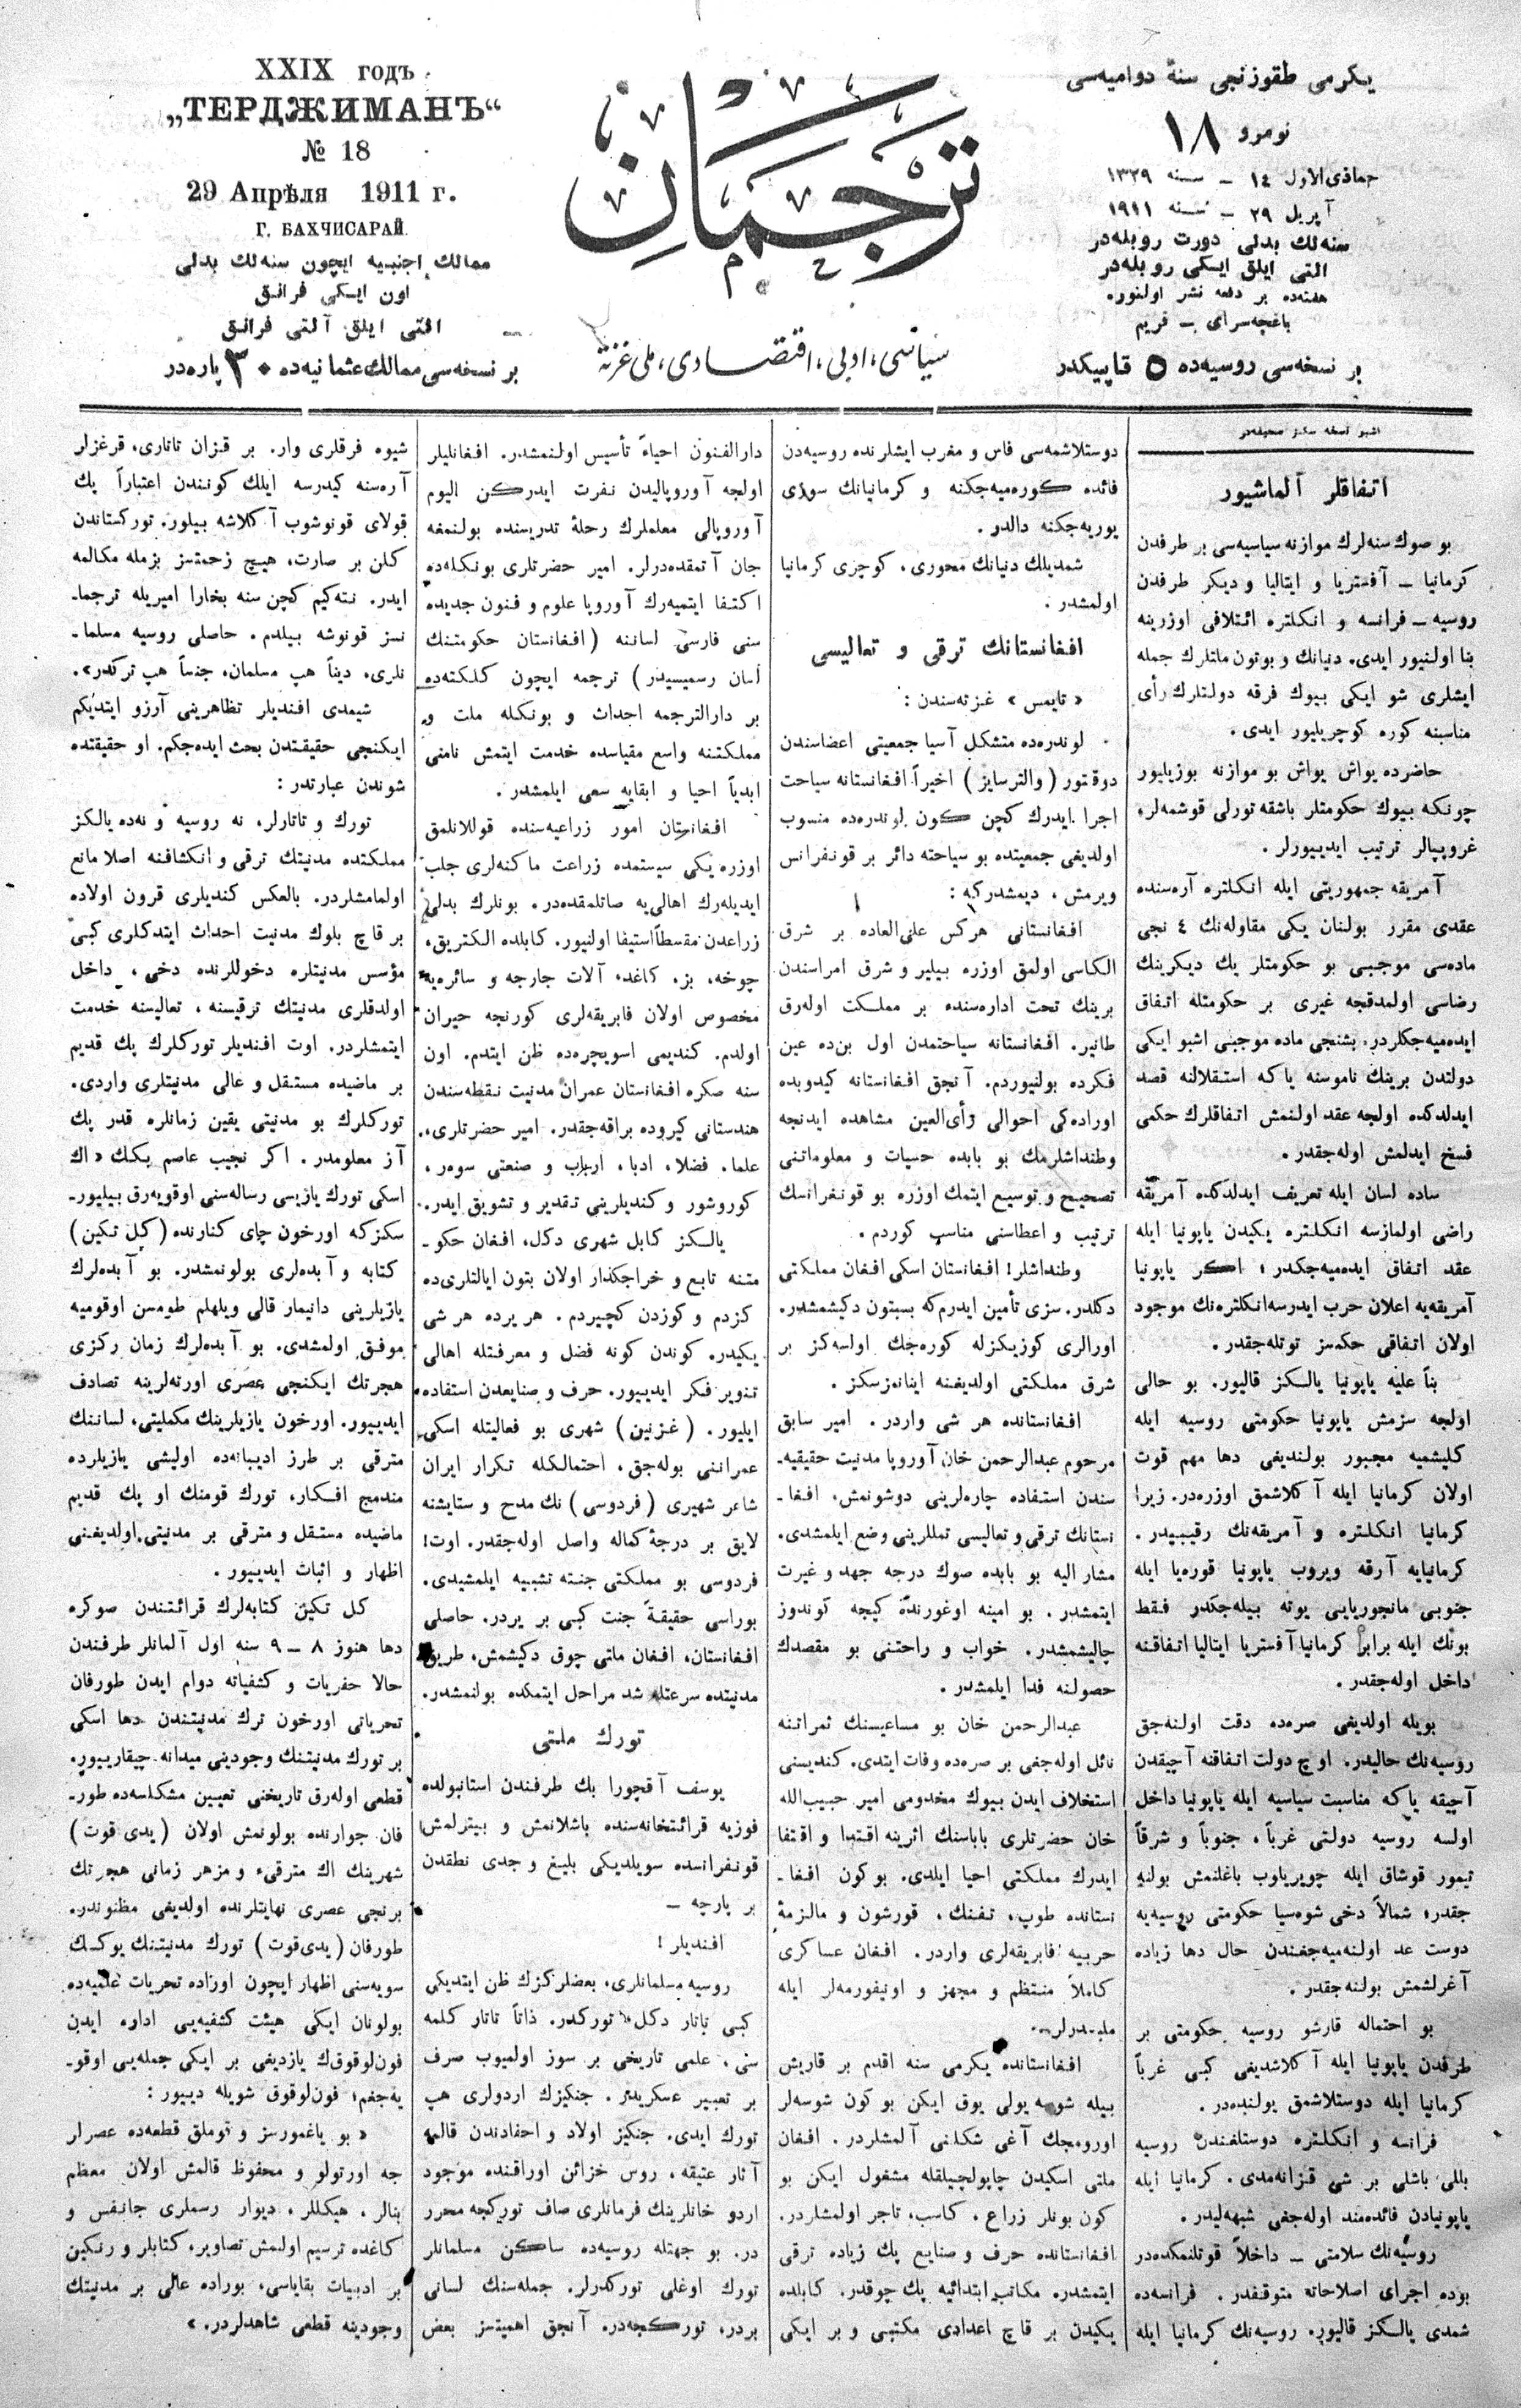 XXIX годъ
„ТЕРДЖИМАНЪ“
№ 18
29 Апрѣля 1911 г.
Г. БАХЧИСАРАЙ.
ممالك اجنبیه ایچون سنەلك بدلی
اون ایکی فرانق
آلتی ایلق آلتی فرانق
بر نسخەسی ممالك عثمانیەده ۳۰ پارەدر
ترجمان
سیاسی، ادبی، اقتصادی، ملی غزتە
یکرمی طقوزنجی سنهٔ دوامیەسی
نومرو ۱۸
جماذی‌الاول ١٤ ــ سنه ١٣٢٩
آپریل ٢٩ ــ سنه ١٩١١
سنەلك بدلی دورت روبلەدر
التی ایلق ایکی روبلەدر
هفتەده بر دفعه نشر اولنور.
باغچەسرای ــ قریم
بر نسخەسی روسیەده ٥ قاپیکدر
اشبو نسخه سکز صحیفەدر
اتفاقلر آلماشیور
بو صوك سنەلرك موازنه سیاسیەسی بر طرفدن
کرمانیا ــ آفستریا و ایتالیا و دیکر طرفدن
روسیه ــ فرانسه و انکلتره ائتلافی اوزرینه
بنا اولنیور ایدی. دنیانك و بوتون ملتلرك جمله
ایشلری شو ایکی بیوك فرقه دولتلرك رأی
مناسبنه کوره کوچریلیور ایدی.
حاضرده یواش یواش بو موازنه بوزیلیور
چونکه بیوك حکومتلر باشقه تورلی قوشمەلر،
غروپپالر ترتیب ایدییورلر.
آمریقه جمهوریتی ایله انکلتره آرەسنده
عقدی مقرر بولنان یکی مقاولەنك ٤ نجی
مادەسی موجبی بو حکومتلر یك دیکرینك
رضاسی اولمدقجه غیری بر حکومتله اتفاق
ایدەمیەجکلردر. بشنجی ماده موجبنی اشبو ایکی
دولتدن برینك ناموسنه یاکه استقلالنه قصد
ایدلدکده اولجه عقد اولنمش اتفاقلرك حکمی
فسخ ایدلمش اولەجقدر.
ساده لسان ایله تعریف ایدلدکده آمریقه
راضی اولمازسه انکلتره یکیدن یاپونیا ایله
عقد اتفاق ایدەمیەجکدر؛ اکر یاپونیا
آمریقەیه اعلان حرب ایدرسه انکلترەنك موجود
اولان اتفاقی حکمسز توتلەجقدر.
بنأ علیه یاپونیا یالکز قالیور. بو حالی
اولجه سزمش یاپونیا حکومتی روسیه ایله
کلیشمیه مجبور بولندیغی دها مهم قوت
اولان کرمانیا ایله آکلاشمق اوزرەدر. زیرا
کرمانیا انکلتره و آمریقەنك رقیبیدر.
کرمانیایه آرقه ویروب یاپونیا قورەیا ایله
جنوبی مانجوریایی یوته بیلەجکدر فقط
بونك ایله برابر کرمانیا آفستریا ایتالیا اتفاقنه
داخل اولەجقدر.
بویله اولدیغی صرەده دقت اولنەجق
روسیەنك حالیدر. اوچ دولت اتفاقنه آچیقدن
آچیقه یاکه مناسبت سیاسیه ایله یاپونیا داخل
اولسه روسیه دولتی غرباً، جنوباً و شرقاً
تیمور قوشاق ایله چویریلوب باغلنمش بولنه
جقدر؛ شمالاً دخی شوەسیا حکومتی روسیەیه
دوست عد اولنەمیەجغندن حال دها زیاده
آغرلشمش بولنەجقدر.
بو احتماله قارشو روسیه حکومتی بر
طرفدن یاپونیا ایله آکلاشدیغی کبی غرباً
کرمانیا ایله دوستلاشمق یولندەدر.
فرانسه و انکلتره دوستلغندن روسیه
بللی باشلی بر شی قزانەمدی. کرمانیا ایله
یاپونیادن فائدەمند اولەجغی شبهەلیدر.
روسیەنك سلامتی ــ داخلاً قوتلنمکدەدر
بوده اجرای اصلاحاته متوقفدر. فرانسەده
شمدی یالکز قالیور. روسیەنك کرمانیا ایله
دوستلاشمەسی فاس و مغرب ایشلرنده روسیەدن
فائده کورەمیەجکنه و کرمانیانك سوزی
یوریەجکنه دالدر.
شمدیلك دنیانك محوری، کوچزی کرمانیا
اولمشدر.
افغانستانك ترقی و تعالیسی
«تایمس» غزتەسندن:
لوندرەده متشکل آسیا جمعیتی اعضاسندن
دوقتور (والترسایز) اخیراً افغانستانه سیاحت
اجرا ایدرك کچن کون لوندرەده منسوب
اولدیغی جمعیتده بو سیاحته دائر بر قونفرانس
ویرمش، دیمشدرکه:
افغانستانی هرکس علی‌العاده بر شرق
الکاسی اولمق اوزره بیلیر و شرق امراسندن
برینك تحت ادارەسنده بر مملکت اولەرق
طانیر. افغانستانه سیاحتمدن اول بن‌ده عین
فکرده بولنیوردم. آنجق افغانستانه کیدوبده
اورادەکی احوالی رأی‌العین مشاهده ایدنجه
وطنداشلرمك بو بابده حسیات و معلوماتنی
تصحیح و توسیع ایتمك اوزره بو قونفرانسك
ترتیب و اعطاسنی مناسب کوردم.
وطنداشلر! افغانستان اسکی افغان مملکتی
دکلدر. سزی تأمین ایدرم که بسبتون دکیشمشدر.
اورالری کوزیکزله کورەجك اولسەکز بر
شرق مملکتی اولدیغنه اینانمزسکز.
افغانستانده هر شی واردر. امیر سابق
مرحوم عبدالرحمن خان آوروپا مدنیت حقیقیە۔
سندن استفاده چارەلرینی دوشونمش، افغا۔
نستانك ترقی و تعالیسی تمللرینی وضع ایلمشدی.
مشار الیه بو بابده صوك درجه جهد و غیرت
ایتمشدر. بو امینه اوغورنده کیجه کوندوز
چالیشمشدر. خواب و راحتنی بو مقصدك
حصولنه فدا ایلمشدر.
عبدالرحمن خان بو مساعیسنك ثمراتنه
نائل اولەجغی بر صرەده وفات ایتدی. کندیسنی
استخلاف ایدن بیوك مخدومی امیر حبیب‌الله
خان حضرتلری باباسنك اثرینه اقتدا و اقتفا
ایدرك مملکتی احیا ایلدی. بو کون افغا۔
نستانده طوپ، تفنك، قورشون و مالزمهٔ
حربیه فابریقەلری واردر. افغان عساکری
کاملاً منتظم و مجهز و اونیفورمەلر ایله
افغانستانده یکرمی سنه اقدم بر قاریش
بیله شوسه یولی یوق ایکن بو کون شوسەلر
اورومجك آغی شکلنی آلمشلردر. افغان
ملتی اسکیدن چاپولچیلقله مشغول ایکن بو
کون بونلر زراع، کاسب، تاجر اولمشلردر.
افغانستانده حرف و صنایع پك زیاده ترقی
ایتمشدر. مکاتب ابتدائیه پك چوقدر. کابلده
یکیدن بر قاچ اعدادی مکتبی و بر ایکی
دارالفنون احیاءً تأسیس اولنمشدر. افغانلیلر
اولجه آوروپالیدن نفرت ایدرکن الیوم
آوروپالی معلملرك رحلهٔ تدریسنده بولنمغه
جان آتمقدەدرلر. امیر حضرتلری بونکلەده
اکتفا ایتمیەرك آوروپا علوم و فنون جدیده
سنی فارسی لساننه (افغانستان حکومتنك
لسان رسمیسیدر) ترجمه ایچون کلکتەده
بر دارالترجمه احداث و بونکله ملت و
مملکتنه واسع مقیاسده خدمت ایتمش نامنی
ابدیاً احیا و ابقایه سعی ایلمشدر.
افغانستان امور زراعیەسنده قوللانلمق
اوزره یکی سیستمده زراعت ماکنەلری جلب
ایدیلەرك اهالی‌یه صاتلمقدەدر. بونلرك بدلی
زراعدن مقسطاً استیفا اولنیور. کابلده الکتریق،
چوخه، بز، کاغد، آلات جارجه و سائرەیه
مخصوص اولان فابریقەلری کورنجه حیران
اولدم. کندیمی اسویچرەده ظن ایتدم. اون
سنه صکره افغانستان عمران مدنیت نقطەسندن
هندستانی کیروده براقەجقدر. امیر حضرتلری،
علما، فضلا، ادبا، ارباب و صنعتی سوەر،
کوروشور و کندیلرینی تقدیر و تشویق ایدر.
یالکز کابل شهری دکل، افغان حکو۔
متنه تابع و خراجکذار اولان بتون ایالتلری‌ده
کزدم و کوزدن کچیردم. هر یرده هر شی
یکیدر. کوندن کونه فضل و معرفتله اهالی
تنویر فکر ایدییور. حرف و صنایعدن استفاده
ایلیور. (غزنین) شهری بو فعالیتله اسکی
عمراننی بولەجق، احتمالکله تکرار ایران
شاعر شهیری (فردوسی) نك مدح و ستایشنه
لایق بر درجهٔ کماله واصل اولەجقدر. اوت!
فردوسی بو مملکتی جنته تشبیه ایلمشیدی.
بوراسی حقیقةً جنت کبی بر یردر. حاصلی
افغانستان، افغان ملتی چوق دکیشمش، طریق
مدنیتده سرعتله شد مراحل ایتمکده بولنمشدر.
تورك ملتی
یوسف آقچورا بك طرفندن استانبولده
فوزیه قرائتخانەسنده باشلانمش و بیترلمش
قونفرانسده سویلدیکی بلیغ و جدی نطقدن
بر پارچه ــ
افندیلر!
روسیه مسلمانلری، بعضلرکزك ظن ایتدیکی
کبی تاتار دکل، تورکدر. ذاتاً تاتار کلمه
سنی، علمی تاریخی بر سوز اولمیوب صرف
بر تعبیر عسکریدر. جنکیزك اردولری هپ
تورك ایدی. جنکیز اولاد و احفادندن قالمه
آثار عتیقه، روس خزائن اوراقنده موجود
اردو خانلرینك فرمانلری صاف تورکجه محرر
در. بو جهتله روسیەده ساکن مسلمانلر
تورك اوغلی تورکدرلر. جملەسنك لسانی
بردر، تورکجەدر. آنجق اهمیتسز بعض
شیوه فرقلری وار. بر قزان تاتاری، قرغزلر
آرەسنه کیدرسه ایلك کونندن اعتباراً پك
قولای قونوشوب آکلاشه بیلور. تورکستاندن
کلن بر صارت، هیچ زحمتسز بزمله مکالمه
ایدر. نتەکیم کچن سنه بخارا امیریله ترجما۔
نسز قونوشه بیلدم. حاصلی روسیه مسلما۔
نلری، دیناً هپ مسلمان، جنساً هپ ترکدر».
شیمدی افندیلر تظاهرینی آرزو ایتدیکم
ایکنجی حقیقتدن بحث ایدەجکم. او حقیقتده
شوندن عبارتدر:
تورك و تاتارلر، نه روسیه و نەده یالکز
مملکتده مدنیتك ترقی و انکشافنه اصلا مانع
اولمامشلردر. بالعکس کندیلری قرون اولاده
بر قاچ بلوك مدنیت احداث ایتدکلری کبی
مؤسس مدنیتلره دخوللرنده دخی، داخل
اولدقلری مدنیتك ترقیسنه، تعالیسنه خدمت
ایتمشلردر. اوت افندیلر تورکلرك پك قدیم
بر ماضیده مستقل و عالی مدنیتلری واردی.
تورکلرك بو مدنیتی یقین زمانلره قدر پك
آز معلومدر. اکر نجیب عاصم بکك «اك
اسکی تورك یازیسی رسالەسنی اوقویەرق بیلیور۔
سکزکه اورخون چای کنارنده (کل تکین)
کتابه و آبدەلری بولونمشدر. بو آبدەلرك
یازیلرینی دانیمار قالی ویلهلم طومسن اوقومیه
موفق اولمشدی. بو آبدەلرك زمان رکزی
هجرتك ایکنجی عصری اورتەلرینه تصادف
ایدییور. اورخون یازیلرینك مکملیتی، لساننك
مترقی بر طرز ادیبانەده اولیشی یازیلرده
مندمج افکار، تورك قومنك او پك قدیم
ماضیده مستقل و مترقی بر مدنیتی اولدیغنی
اظهار و اثبات ایدییور.
کل تکین کتابەلرك قرائتندن صوکره
دها هنوز ٨ ــ ٩ سنه اول آلمانلر طرفندن
حالا حفریات و کشفیاته دوام ایدن طورفان
تحریاتی اورخون ترك مدنیتندن دها اسکی
بر تورك مدنیتنك وجودینی میدانه چیقارییور.
قطعی اولەرق تاریخنی تعیین مشکلسەده طور۔
فان جوارنده بولونمش اولان (یدی قوت)
شهرینك اك مترقی و مزهر زمانی هجرتك
برنجی عصری نهایتلرنده اولدیغی مظنوندر.
طورفان (یدی‌قوت) تورك مدنیتنك یوکسك
سویەسنی اظهار ایچون اوراده تحریات علمیەده
بولونان ایکی هیئت کشفیەیی اداره ایدن
فون‌لوقوق‌ك یازدیغی بر ایکی جملەیی اوقو۔
یەجغم؛ فون‌لوقوق شویله دییور:
«بو یاغمورسز و قوملق قطعەده عصرلر
جه اورتولو و محفوظ قالمش اولان معظم
بنالر، هیکللر، دیوار رسملری جانفس و
کاغده ترسیم اولنمش تصاویر، کتابلر و رنکین
بر ادبیات بقایاسی، بوراده عالی بر مدنیتك
وجودینه قطعی شاهدلردر.»